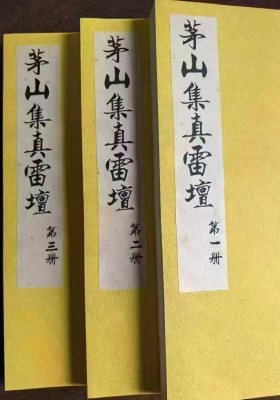 茅山集真雷壇
第一册
茅山集真雷壇
第二册
茅山集真雷壇
第三册